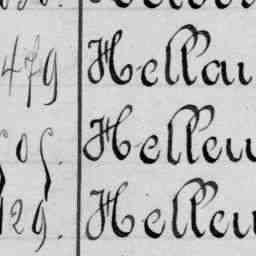 479 Hellau
505. Helleu
129. Helleu